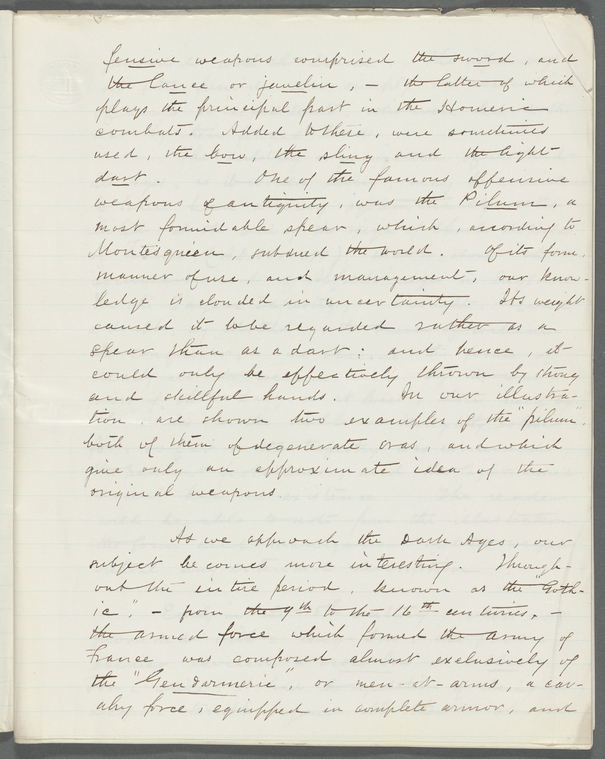 fensive weapons comprised the sword, and
the lance or javelin, – the latter of which
plays the principal part in the Homeric
combats. Added to these, were sometimes
used, the bow, the sling and the light
dart. One of the famous offensive
weapons of antiquity, was the Pilum, a
most formidable spear, which, according to
Montesquieu, subdued the world. Of its form,
manner of use, and management, our know-
ledge is clouded in uncertainty. Its weight
caused it to be regarded rather as a
spear than as a dart: and hence, it
could only be effectively thrown by strong
and skillful hands. In our illustra-
tion, are shown two examples of the "pilum",
both of them of degenerate eras, and which
give only an approximate idea of the
original weapons.
As we approach the Dark Ages, our
subject becomes more interesting. Through-
out the entire period, known as the "Goth-
ic", – from the 9th to the 16th centuries, –
the armed force which formed the army of
France was composed almost exclusively of
the "Gendarmerie", or men-at-arms, a cav-
alry force, equipped in complete armor, and